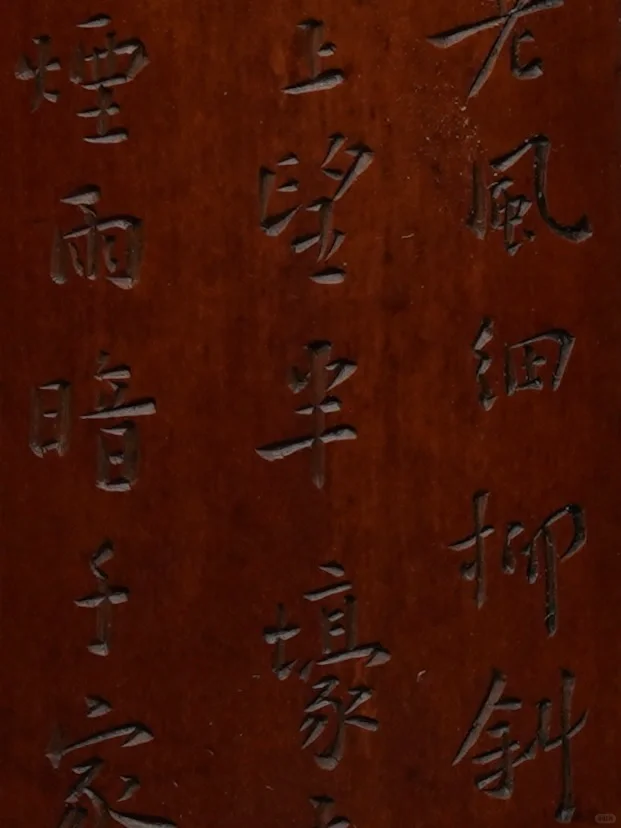 老風細柳斜
上望半壕
煙雨暗千家